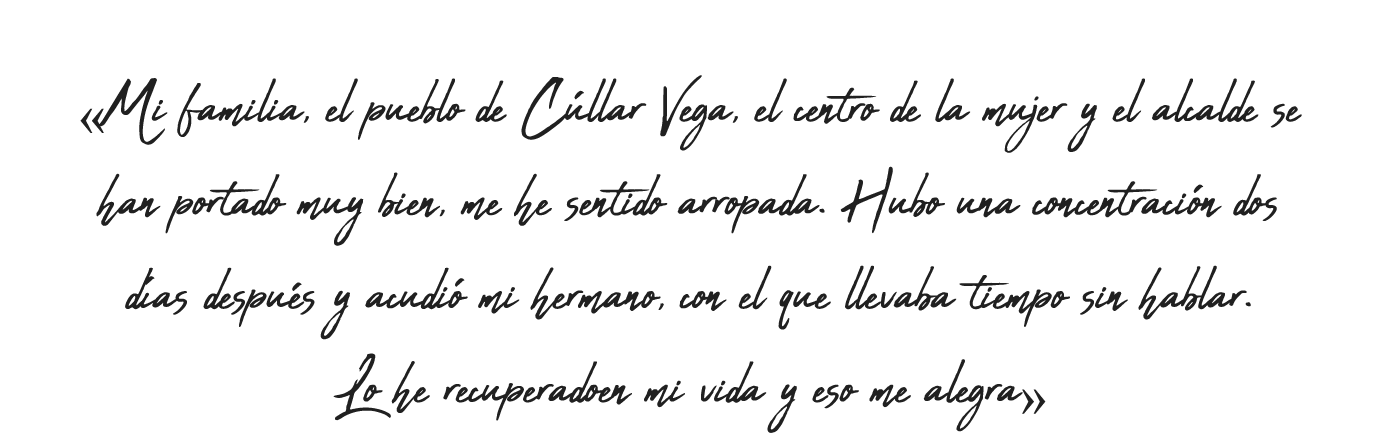 «Mi familia, el pueblo de Cúllar Vega, el centro de la mujer y el alcalde se
han portado muy bien, me he sentido arropada. Hubo una concentración dos
días después y acudió mi hermano, con el que llevaba tiempo sin hablar.
Lo he recuperadoen mi vida y eso me alegra»